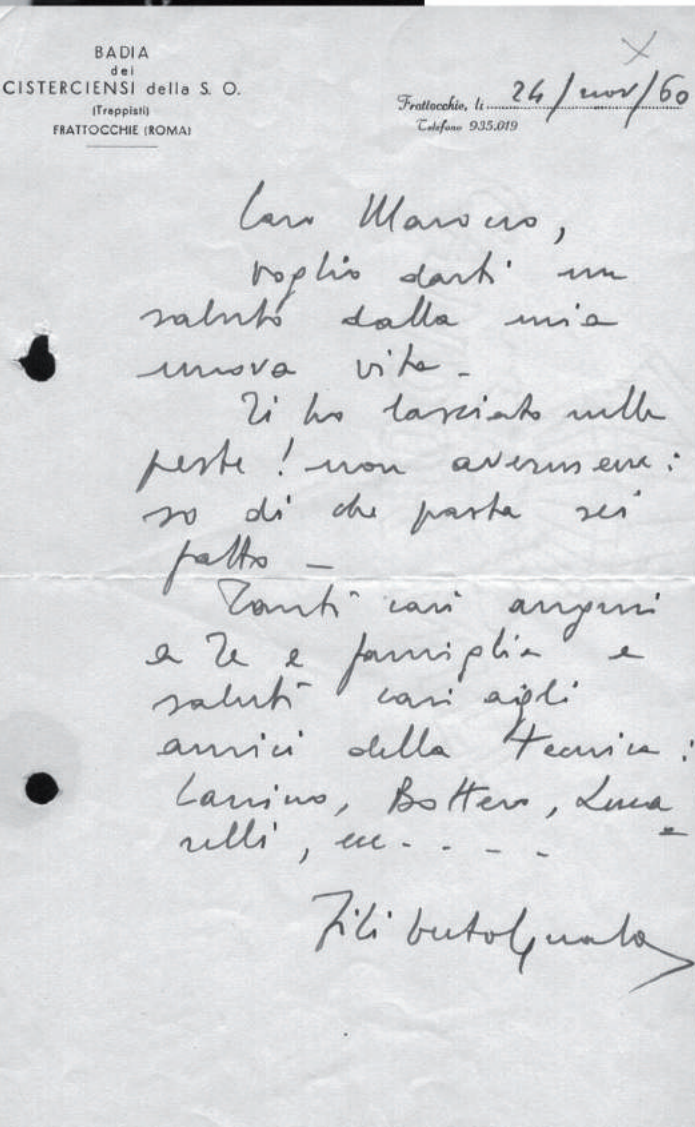 BADIA
dei
CISTERCIENSI della S. O.
(Trappisti)
FRATTOCCHIE (ROMA)
Frattocchie, li 24/nov/60
Telefono 935.019
Caro
voglio darti un
saluto dalla mia
nuova vita -
Ti ho lasciato nelle
peste! non avermene:
so di che pasta sei
fatto -
Tanti cari auguri
a Te e famiglia e
saluti cari agli
amici della Tecnica:
Bottero,
ecc - - - -
Filiberto Guala